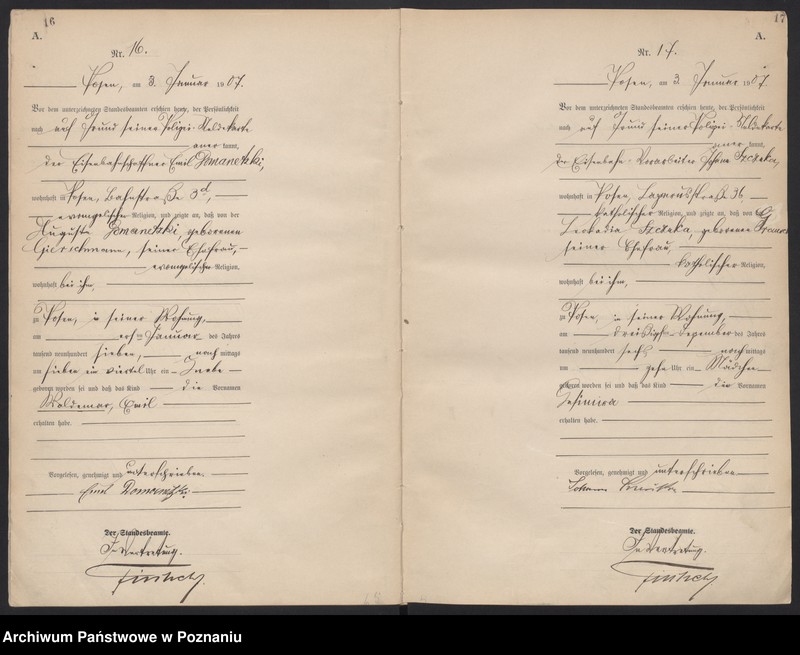 16
A.
Nr. 16.
Posen, am 3. Januar 1907.
Vor dem unterzeichneten Standesbeamten erschien heute, der Persönlichkeit
nach auf Grund seiner Polizei-Meldekarte
kannt,
der Eisenbahnschaffner Emil
wohnhaft in Posen, Bahnstraße 3d,
evangelischer Religion, und zeigte an, daß von der
Auguste geborenen
seiner Ehefrau,
evangelischer Religion,
wohnhaft bei ihm,
zu Posen, in seiner Wohnung,
am ersten Januar des Jahres
tausend neunhundert sieben, nach mittags
um sieben ein viertel Uhr ein Knabe
geboren worden sei und daß das Kind die Vornamen
Waldemar, Emil
erhalten habe.
Vorgelesen, genehmigt und unterschrieben
Emil
Der Standesbeamte.
In Vertretung.
17
A.
Nr. 17.
Posen, am 3. Januar 1907.
Vor dem unterzeichneten Standesbeamten erschien heute, der Persönlichkeit
nach auf Grund seiner Polizei-Meldekarte
kannt,
der Eisenbahn-Vorarbeiter Johann
wohnhaft in Posen, Lazarusstraße 36,
katholischer Religion, und zeigte an, daß von der
Leokadia geborenen
seiner Ehefrau,
katholischer Religion,
wohnhaft bei ihm,
zu Posen, in seiner Wohnung,
am Dezember des Jahres
tausend neunhundert sechs nach mittags
um zehn Uhr ein Mädchen
geboren worden sei und daß das Kind die Vornamen
erhalten habe.
Vorgelesen, genehmigt und unterschrieben
Johann
Der Standesbeamte.
In Vertretung.
Archiwum Państwowe w Poznaniu